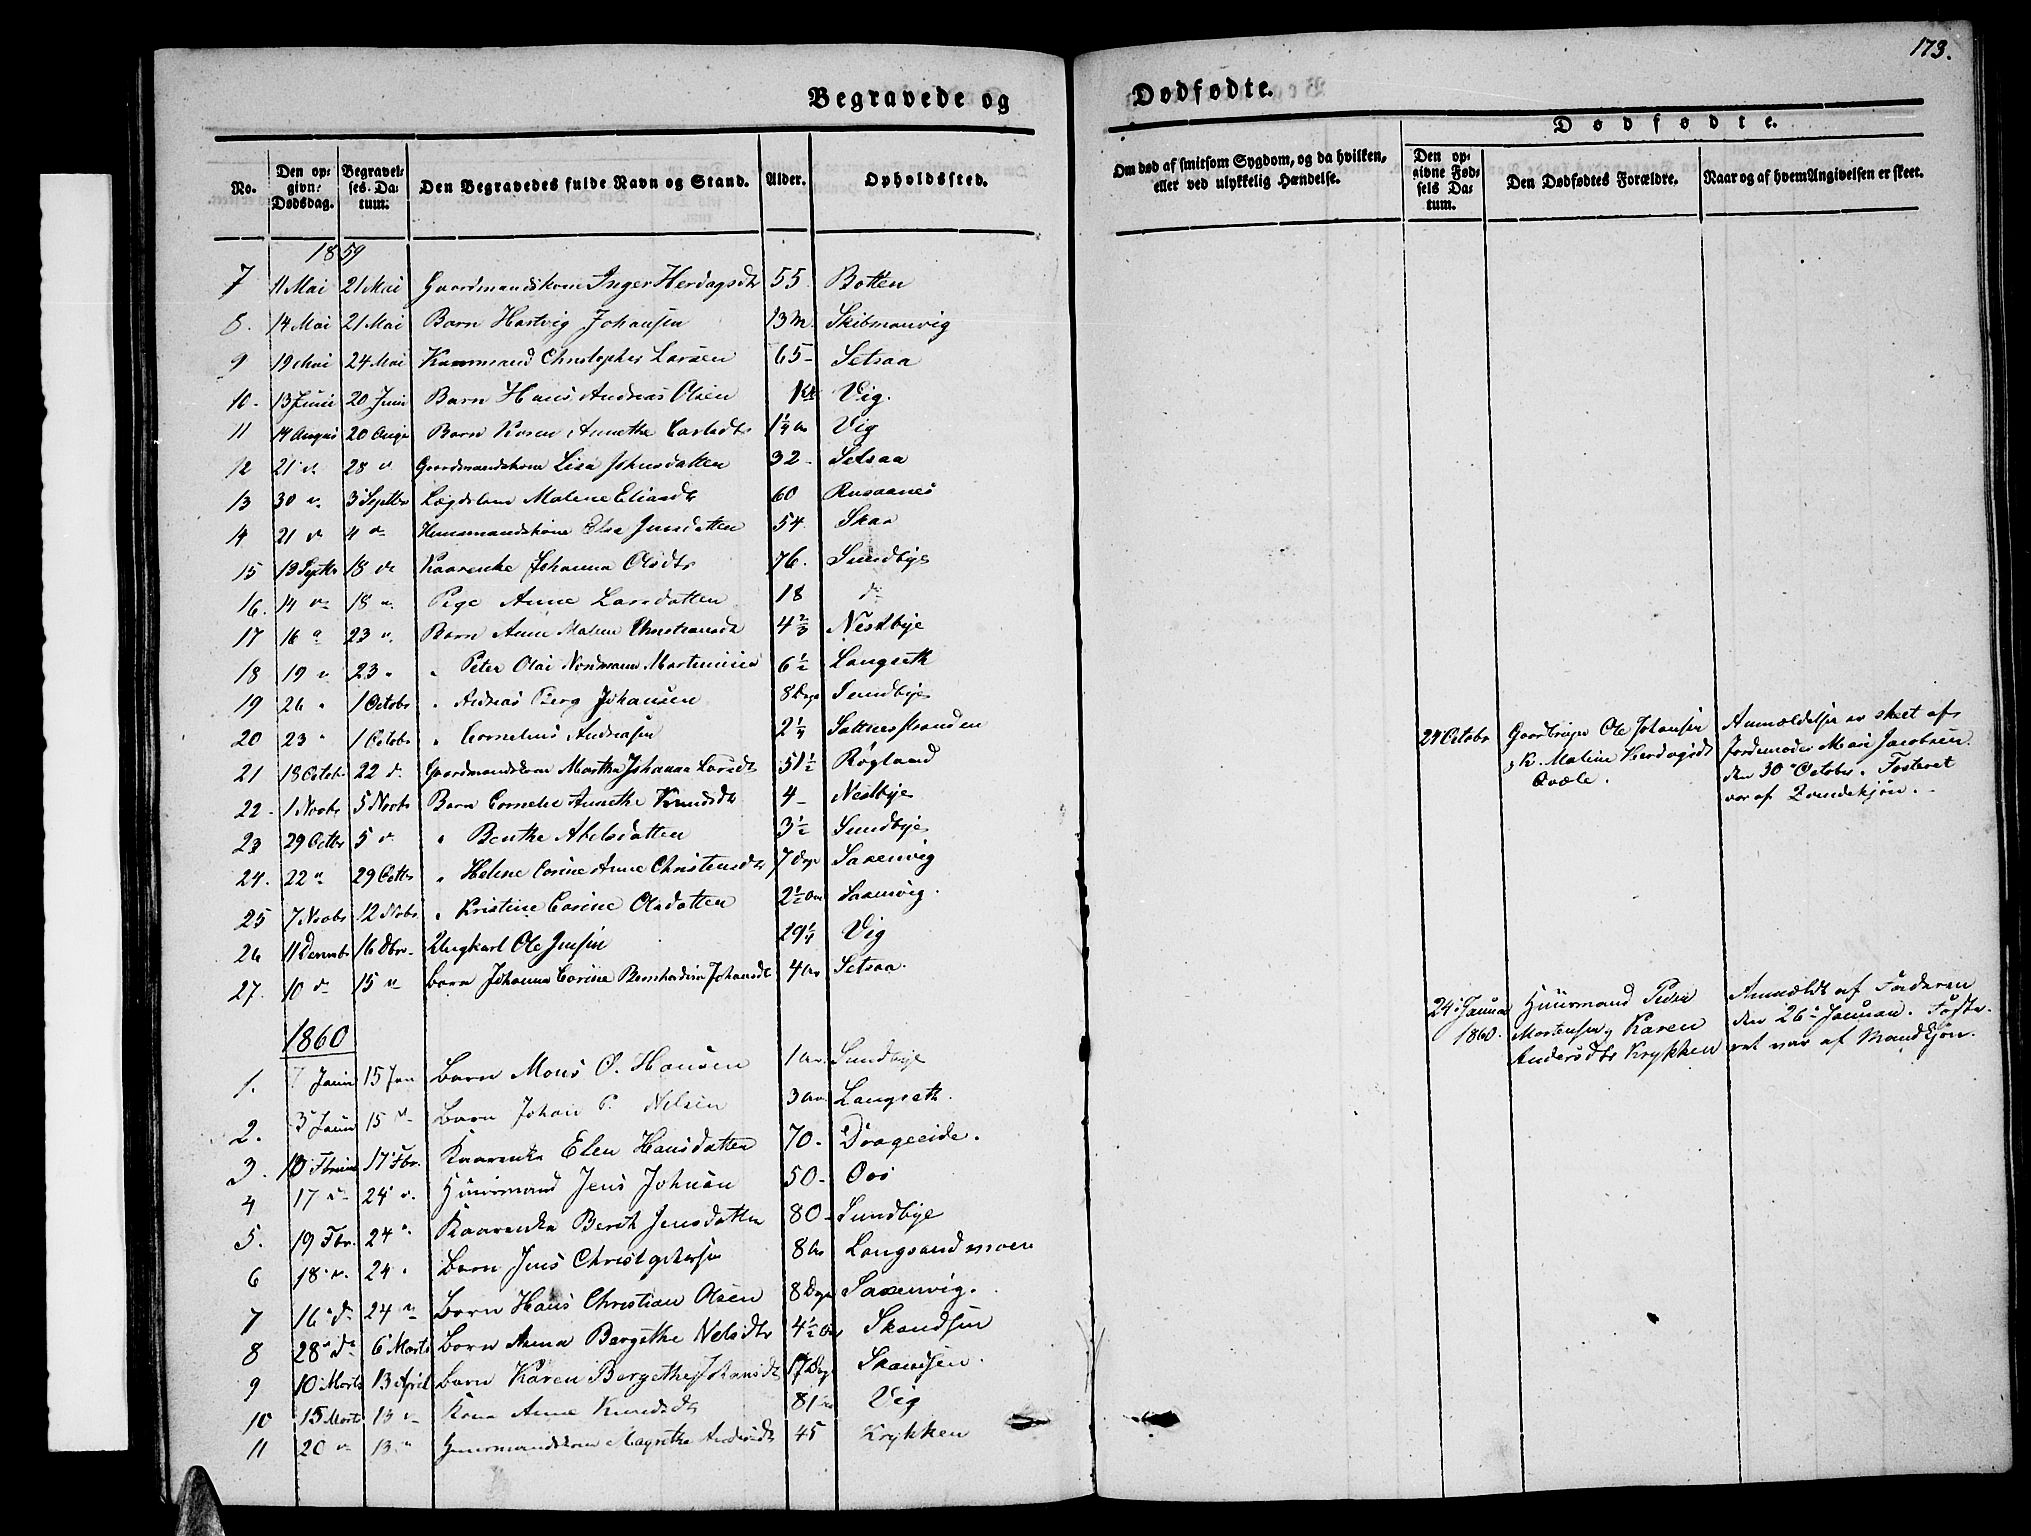 173.
Begravede og Dødfødte.
No. Den opgivn: Dødsdag. Begravelses-Datum. Den Begravedes fulde Navn og Stand. Alder. Opholdssted.
Om død af smitsom Sygdom, og da hvilken, eller ved ulykkelig Hændelse.
Dødfødte.
Den opgivne Fødsels Datum. Den Dødfødtes Forældre. Naar og af hvem Angivelsen er skeet.
1859
7 11 Mai 21 Mai Gaardmandskone Inger Herdagsdtr 55 Botten
8. 14 Mai 21 Mai Barn Hartvig Johansen 13 M. Skibmanvig
9 19 Mai 24 Mai Kaarmand Christopher Larsen 65- Setsaa
10- 13 Juni 20 Juni Barn Hans Andreas Olsen Vig.
11 14 August 20 Augu Barn Karen Annethe Carlsdtr 1¼ Aar Vig
12 21 d. 28 d Gaardmandskone Lisa Johnsdatter 32- Setsaa
13 30 d. 3 Septbr Lægdslem Malene Eliasdtr 60 Rusaanes
14 21 d 4 d Huusmandskone Elsa Jensdatter 54. Skar
15 13 Septbr 18 d Kaarenke Johanna Olsdtr 76. Sundbye
16. 14 d 18 d. Pige Anne Larsdatter 18 do
17 16 " 23 d. Barn Anne Malene Christiansdtr 4⅔ Nestbye
18 19 d 23 " " Peter Olai Nordmann Martinusen 6½ Langseth
19 26 " 1 Octobr " Andreas Berg Johansen 8 Dage Sundbye
20 23 " 1 Octobr " Cornelius Andreasen 2¼ Saltnesstranden
21 18 Octobr 22 d. Gaardmandskone Martha Johanna Larsdtr 51½ Røgland
22- 1 Novbr 5 Novbr Barn Cornelie Annethe Knudsdtr 4- Nestbye
23 29 Octbr 5 d " Benthe Abelsdatter 3½ Sundbye
24. 22 " 29 Octbr " Helene Corine Anne Christensdtr 7 Dage Saxenvig
25 7 Novbr 12 Novbr " Kristine Corine Olsdatter 2½ Aar Saxenvig.
26 11 Decembr 16 Dbr. Ungkarl Ole Jensen 29¼ Vig
27. 10 d 15 d Barn Johanna Corine Bernhardine Johansdtr 4 Aar Setsaa.
24 Octobr Gaardbruger Ole Johansen
g K. Maline Herdagsdtr
Qvæle.
Anmældelsen er skeet af
Jordemoder Marie Jacobsen
den 30 October. Fosteret
var af Qvindekjøn.
1860
1. 7 Januar 15 Jan Barn Mons O. Hansen 1 Aar Sundbye
2. 3 Januar 15 d Barn Johan P. Nelsen 3 Aar Langseth.
3. 10 Februar 17 Fbr. Kaarenke Elen Hansdatter 70- Drageeide.
4 17 d 24 d. Huusmand Jens Johnsen 50- Os
5. 19 Fbr. 24 " Kaarenke Berit Jensdatter 80- Sundbye
6 18 d. 24 " Barn Jens Christophersen 8 Aar Langsandmoen
7 16 d. 24 " Barn Hans Christian Olsen 8 Dage Saxenvig.
8 28 d. 6 Marts Barn Anna Bergithe Nelsdtr 4½ Aar Skandsen
9 10 Marts 13 April Barn Karen Bergethe Johansdtr 17 Dage Skandsen.
10 15 Marts 13 d Kone Anne Knudsdtr 81 Aar Vig
11 20 d 13 " Huusmandskone Magrethe Andersdtr 45 Krykken
24 Januar
1860.
Huusmand Peder
Mortensen g Karen
Andersdtr Krykken
Anmældt af Faderen
den 26 Januar. Foste-
ret var af Mandkjøn.